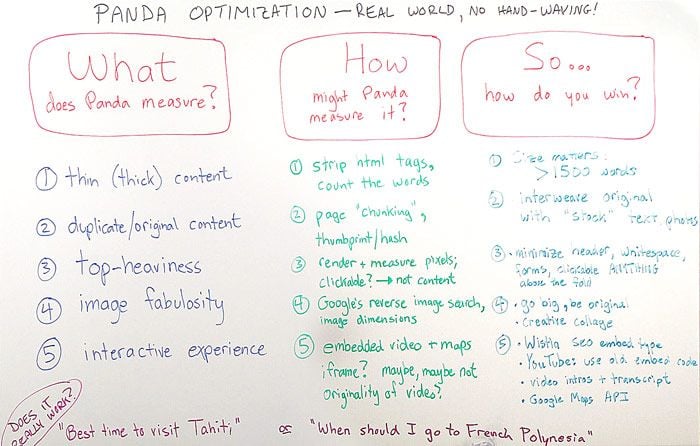 PANDA OPTIMIZATION — REAL WORLD, NO HAND-WAVING!
What
does Panda measure?
① thin (thick) content
② duplicate/original content
③ top-heaviness
④ image fabulosity
⑤ interactive experience
How
might Panda
measure it?
① strip html tags,
count the words
② page "chunking",
thumbprint/hash
③ render + measure pixels;
clickable? → not content
④ Google's reverse image search,
image dimensions
⑤ embedded video + maps
iframe? maybe, maybe not
originality of video?
So...
how do you win?
① Size matters:
>1500 words
② interweave original
with "stock" text, photos
③ • minimize header, whitespace,
forms, clickable ANYTHING
above the fold
④ • go big, be original
• Creative collage
⑤ • Wistia SEO embed type
• YouTube: use old embed code
• video intros + transcript
• Google Maps API
DOES IT
REALLY WORK?
"Best time to visit Tahiti," or "When should I go to French Polynesia"